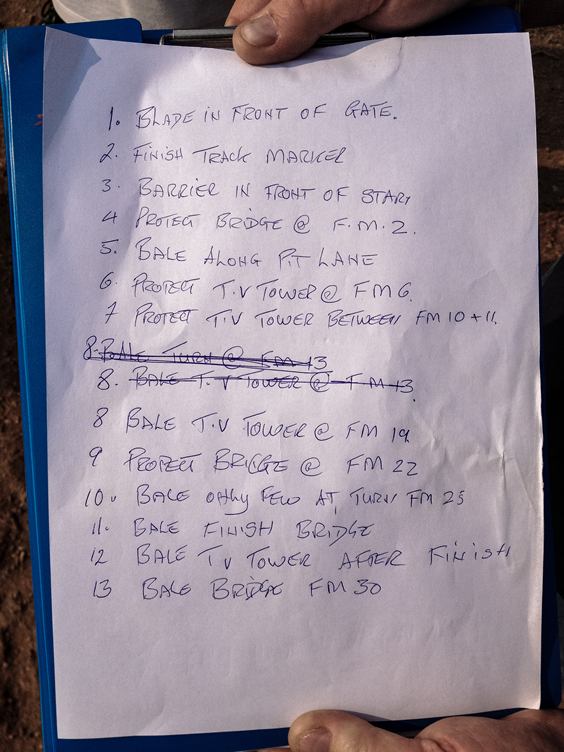 1. BLADE IN FRONT OF GATE.
2. FINISH TRACK MARKER
3. BARRIER IN FRONT OF START
4 PROTECT BRIDGE @ F.M.2.
5. BALE ALONG PIT LANE
6. PROTECT T.V TOWER @ FM6.
7 PROTECT T.V TOWER BETWEEN FM 10 + 11.
8. BALE TURN @ FM 13
8. BALE T.V TOWER @ FM 13.
8 BALE T.V TOWER @ FM 19
9 PROTECT BRIDGE @ FM 22
10. BALE FEW AT TURN FM 25
11. BALE FINISH BRIDGE
12 BALE TV TOWER AFTER FINISH
13 BALE BRIDGE FM 30